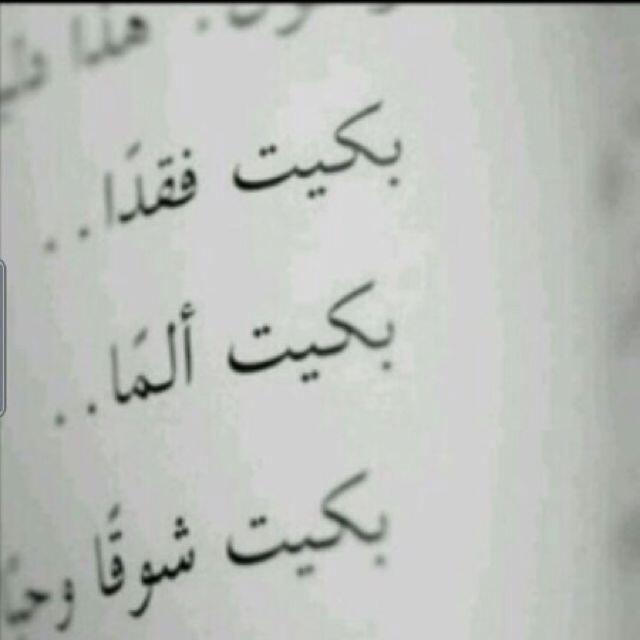 هذا
بكيت فقدًا..
بكيت ألمًا..
بكيت شوقًا